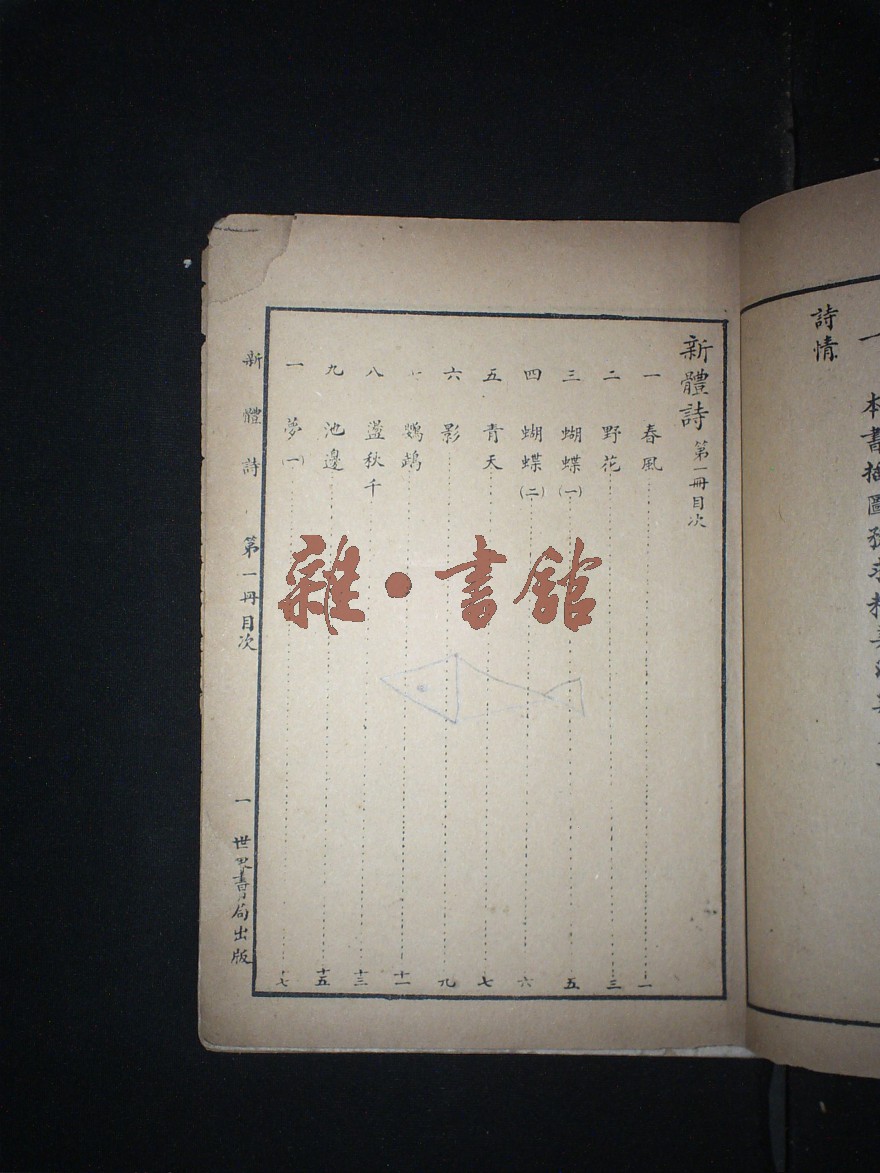 一 本書插圖務求精美
詩情
新體詩 第一冊目次
一 春風 一
二 野花 三
三 蝴蝶(一) 五
四 蝴蝶(二) 六
五 青天 七
六 影 九
鸚鵡 十一
八 盪秋千 十三
九 池邊 十五
一 夢(一) 十七
新體詩 第一冊目次 一 世界書局出版
雜·書館